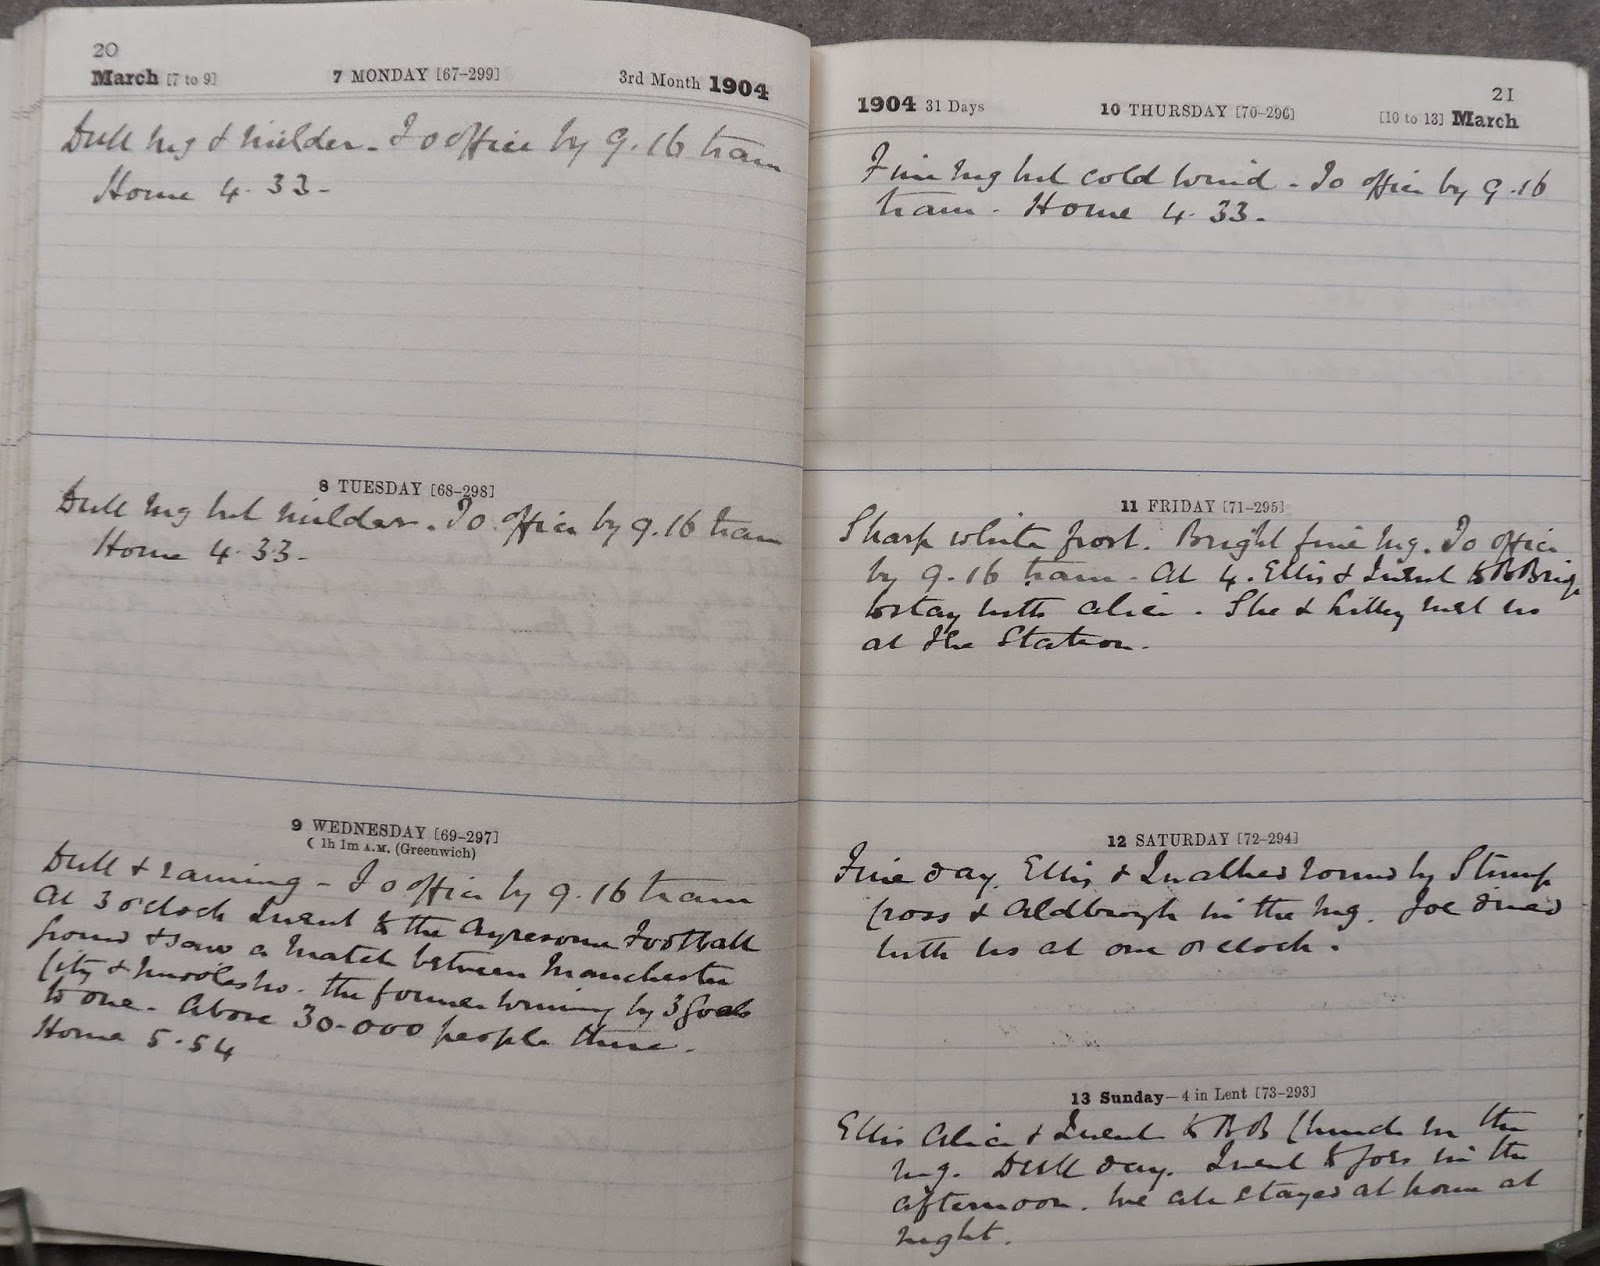 20
March [7 to 9] 7 MONDAY [67–299] 3rd Month 1904
Dull mg & milder. To office by 9.16 tram
Home 4.33.
8 TUESDAY [68–298]
Dull mg but milder. To office by 9.16 tram
Home 4.33.
9 WEDNESDAY [69–297]
☾ 1h 1m A.M. (Greenwich)
Dull & raining – To office by 9.16 tram
At 3 o'clock I went to the Ayresome Football
ground & saw a match between Manchester
City & Middlesbro. the former winning by 3 goals
to one. Above 30.000 people there.
Home 5.54
21
1904 31 Days 10 THURSDAY [70–296] [10 to 13] March
Fine mg but cold wind. To office by 9.16
tram. Home 4.33.
11 FRIDAY [71–295]
Sharp white frost. Bright fine mg. To office
by 9.16 tram. At 4. Ellis & I went to BoBrig
to stay with Alice. She & Kitty met us
at the Station.
12 SATURDAY [72–294]
Fine day. Ellis & I walked round by Stump
Cross & Aldbrough in the mg. Joe dined
with us at one o'clock.
13 Sunday—4 in Lent [73–293]
Ellis Alice & I went to BB Church in the
mg. Dull day. I went to Joes in the
afternoon. We all stayed at home at
night.